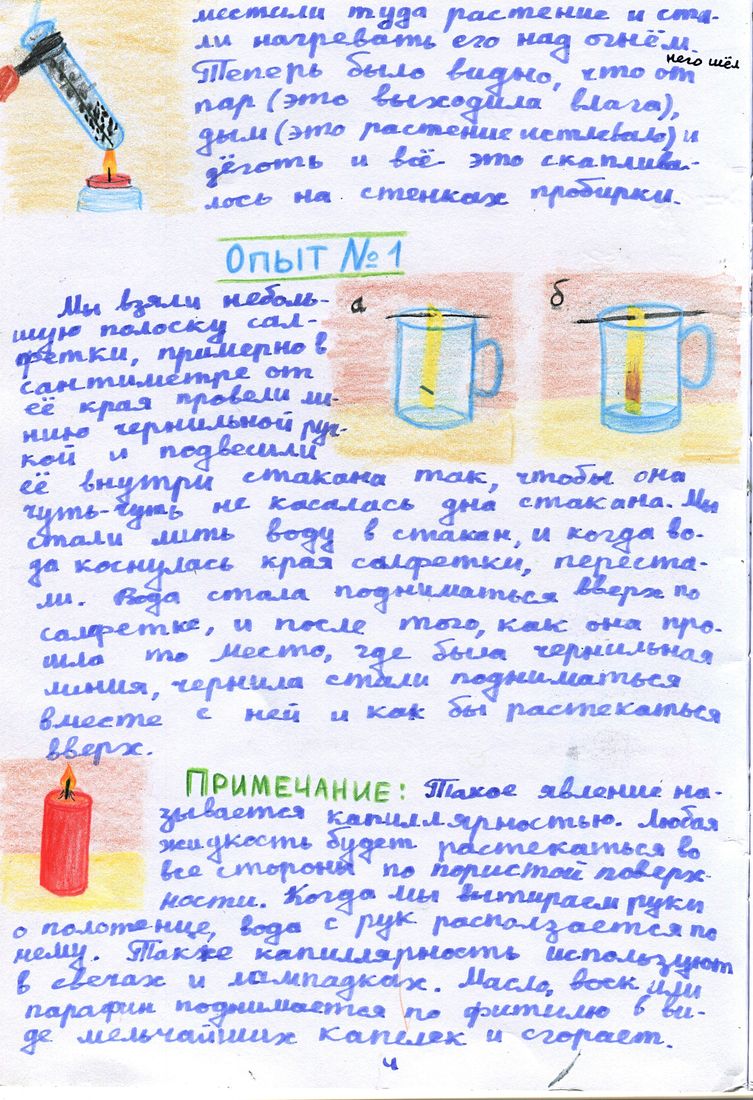 местили туда растение и ста-
ли нагревать его над огнём.
Теперь было видно, что от него шёл
пар (это выходила влага),
дым (это растение истлевало) и
дёготь и всё это скаплива-
лось на стенках пробирки.
ОПЫТ №1
Мы взяли неболь-
шую полоску сал-
фетки, примерно в
сантиметре от
её края провели ли-
нию чернильной руч-
кой и подвесили
её внутри стакана так, чтобы она
чуть-чуть не касалась дна стакана. Мы
стали лить воду в стакан, и когда во-
да коснулась края салфетки, переста-
ли. Вода стала подниматься вверх по
салфетке, и после того, как она про-
шла то место, где была чернильная
линия, чернила стали подниматься
вместе с ней и как бы растекаться
вверх.
а
б
ПРИМЕЧАНИЕ: Такое явление на-
зывается капиллярностью. Любая
жидкость будет растекаться во
все стороны по пористой поверх-
ности. Когда мы вытираем руки
о полотенце, вода с рук расползается по
нему. Также капиллярность используют
в свечах и лампадках. Масло, воск или
парафин поднимается по фитилю в ви-
де мельчайших капелек и сгорает.
4